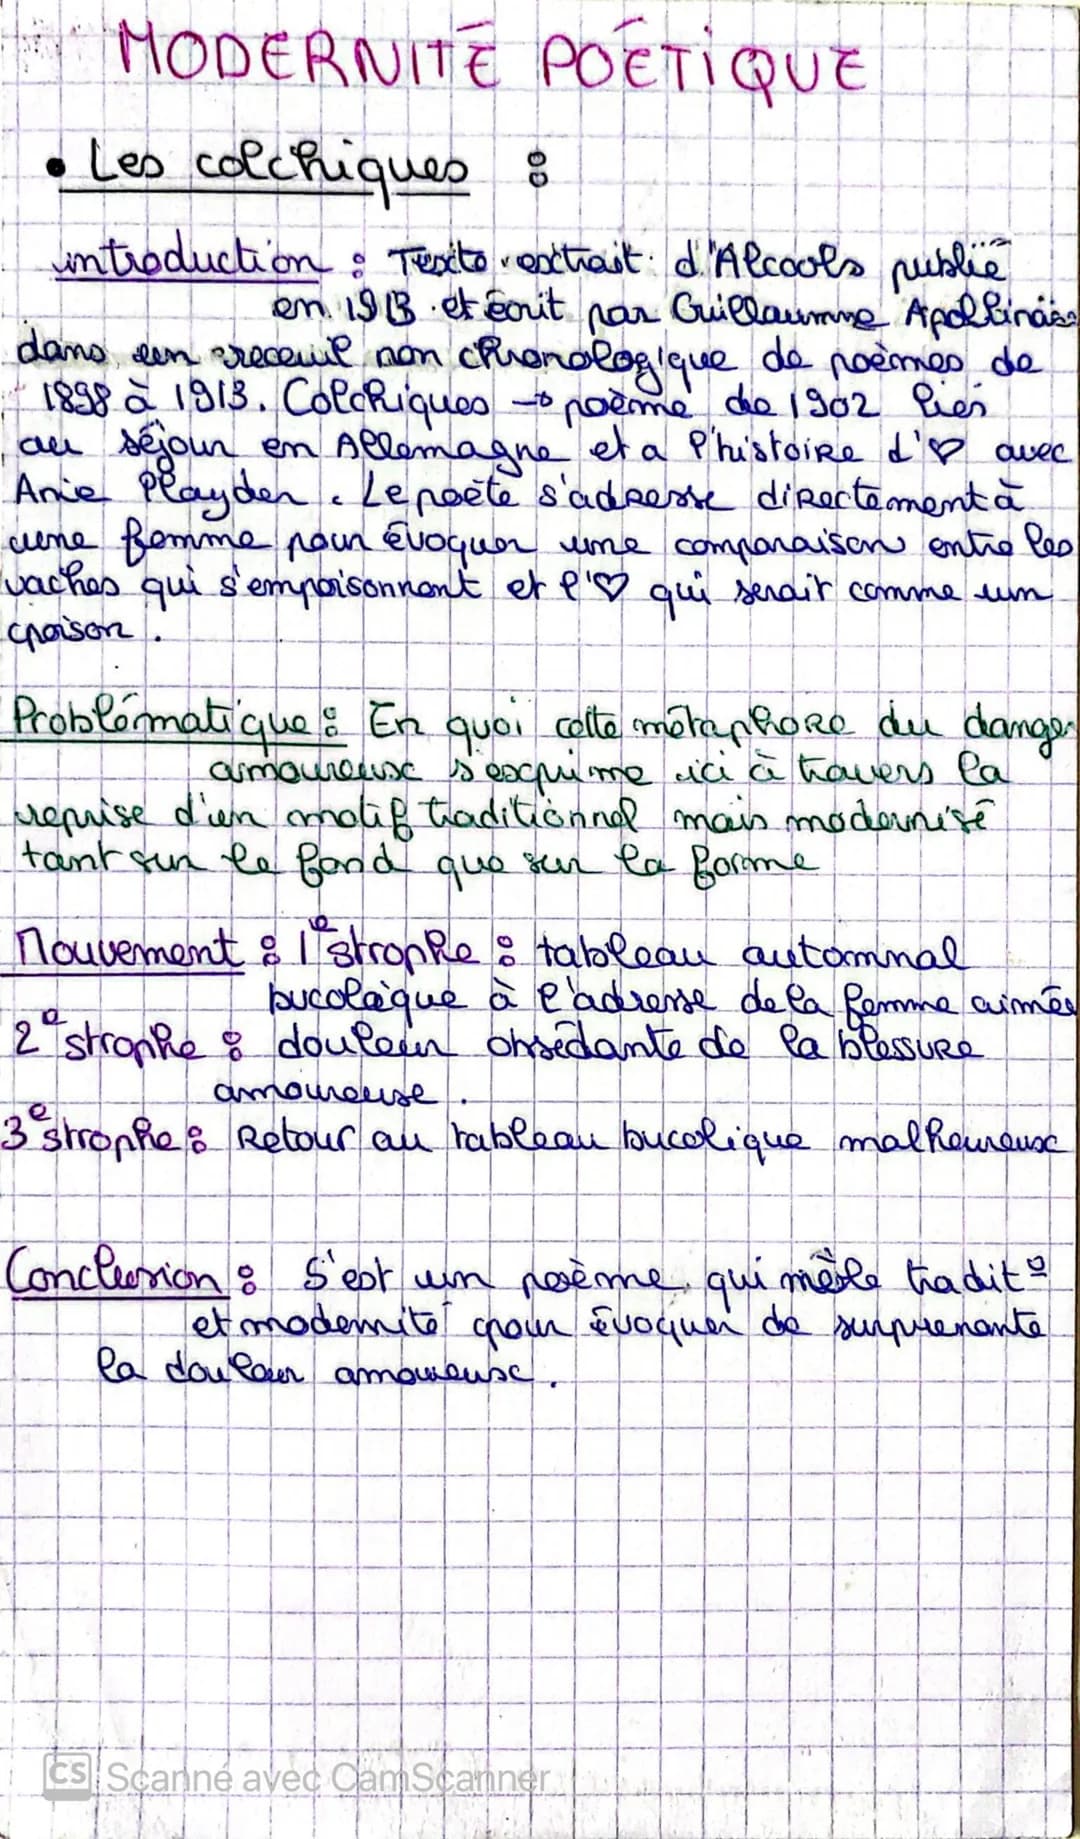 MODERNITÉ POÉTIQUE
• Les colchiques :
introduction : Texte extrait d'Alcools publié
en 1913 et écrit par Guillaumme Apollinaire
dans un receuil non chronologique de poèmes de
1898 à 1913. Colchiques → poème de 1902 liés
au séjour en Allemagne et a l'histoire d'♡ avec
Anie Playden. Le poète s'adresse directement à
une femme pour évoquer une comparaison entre les
vaches qui s'empoisonnent et l'♡ qui serait comme un
poison.
Problématique : En quoi cette métaphore du danger
amoureux s'exprime ici à travers la
reprise d'un motif traditionnel mais modernisé
tant sur le fond que sur la forme
Mouvement : 1e strophe : tableau automnal
bucolique à l'adresse de la femme aimée
2e strophe : douleur obsédante de la blessure
amoureuse.
3e strophe : Retour au tableau bucolique malheureux
Conclusion : S'est un poème qui mêle tradit°
et modernité pour évoquer de surprenante
la douleur amoureuse.
CS Scanné avec CamScanner